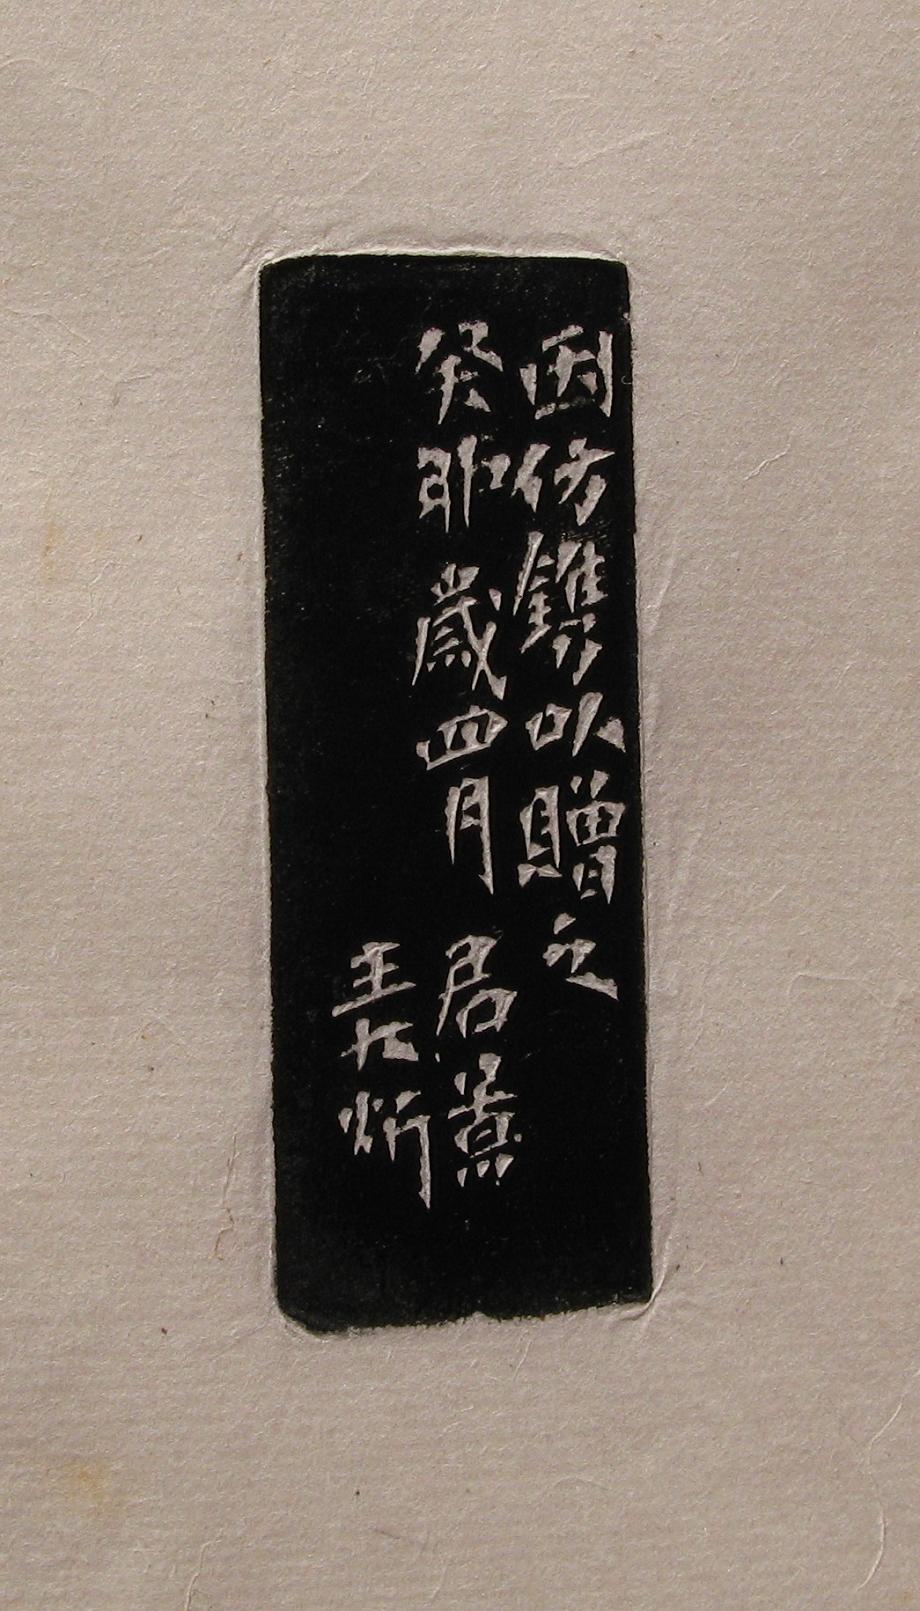 因仿鐫以贈之
癸卯歲四月 君熹
王大炘